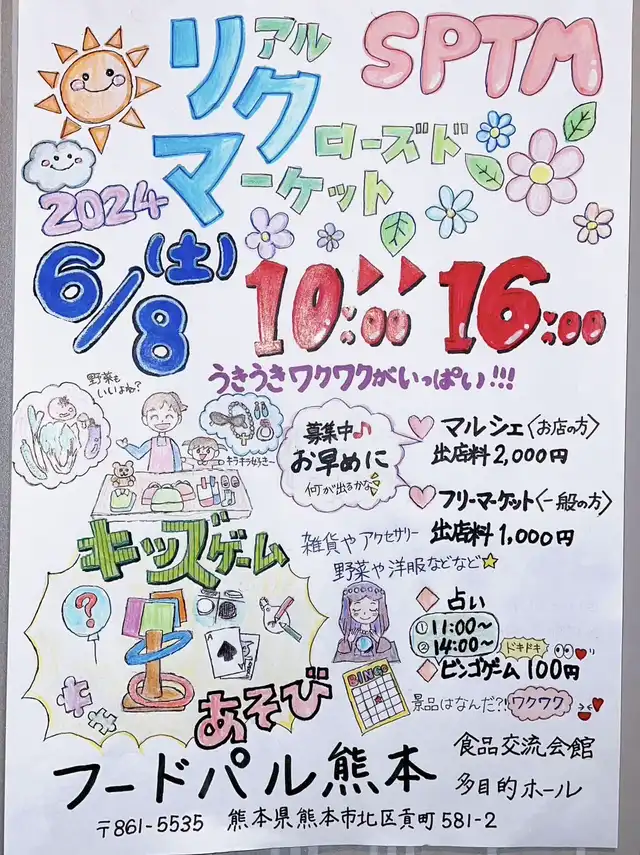 リアル
SPTM
クローズド
マーケット
2024
6/8(土)
10:00▶▶16:00
うきうきワクワクがいっぱい!!!
野菜も
いいよね?
キラキラ好き〜
募集中♪
お早めに
何が出るかな
マルシェ〈お店の方〉
出店料2,000円
フリーマーケット〈一般の方〉
出店料1,000円
雑貨や アクセサリー
野菜や洋服などなど
キッズゲーム
?
あそび
占い
① 11:00〜
② 14:00〜
ドキドキ
ビンゴゲーム 100円
BINGO
景品はなんだ?!ワクワク
フードパル熊本
食品交流会館
多目的ホール
〒861-5535 熊本県熊本市北区貢町581-2